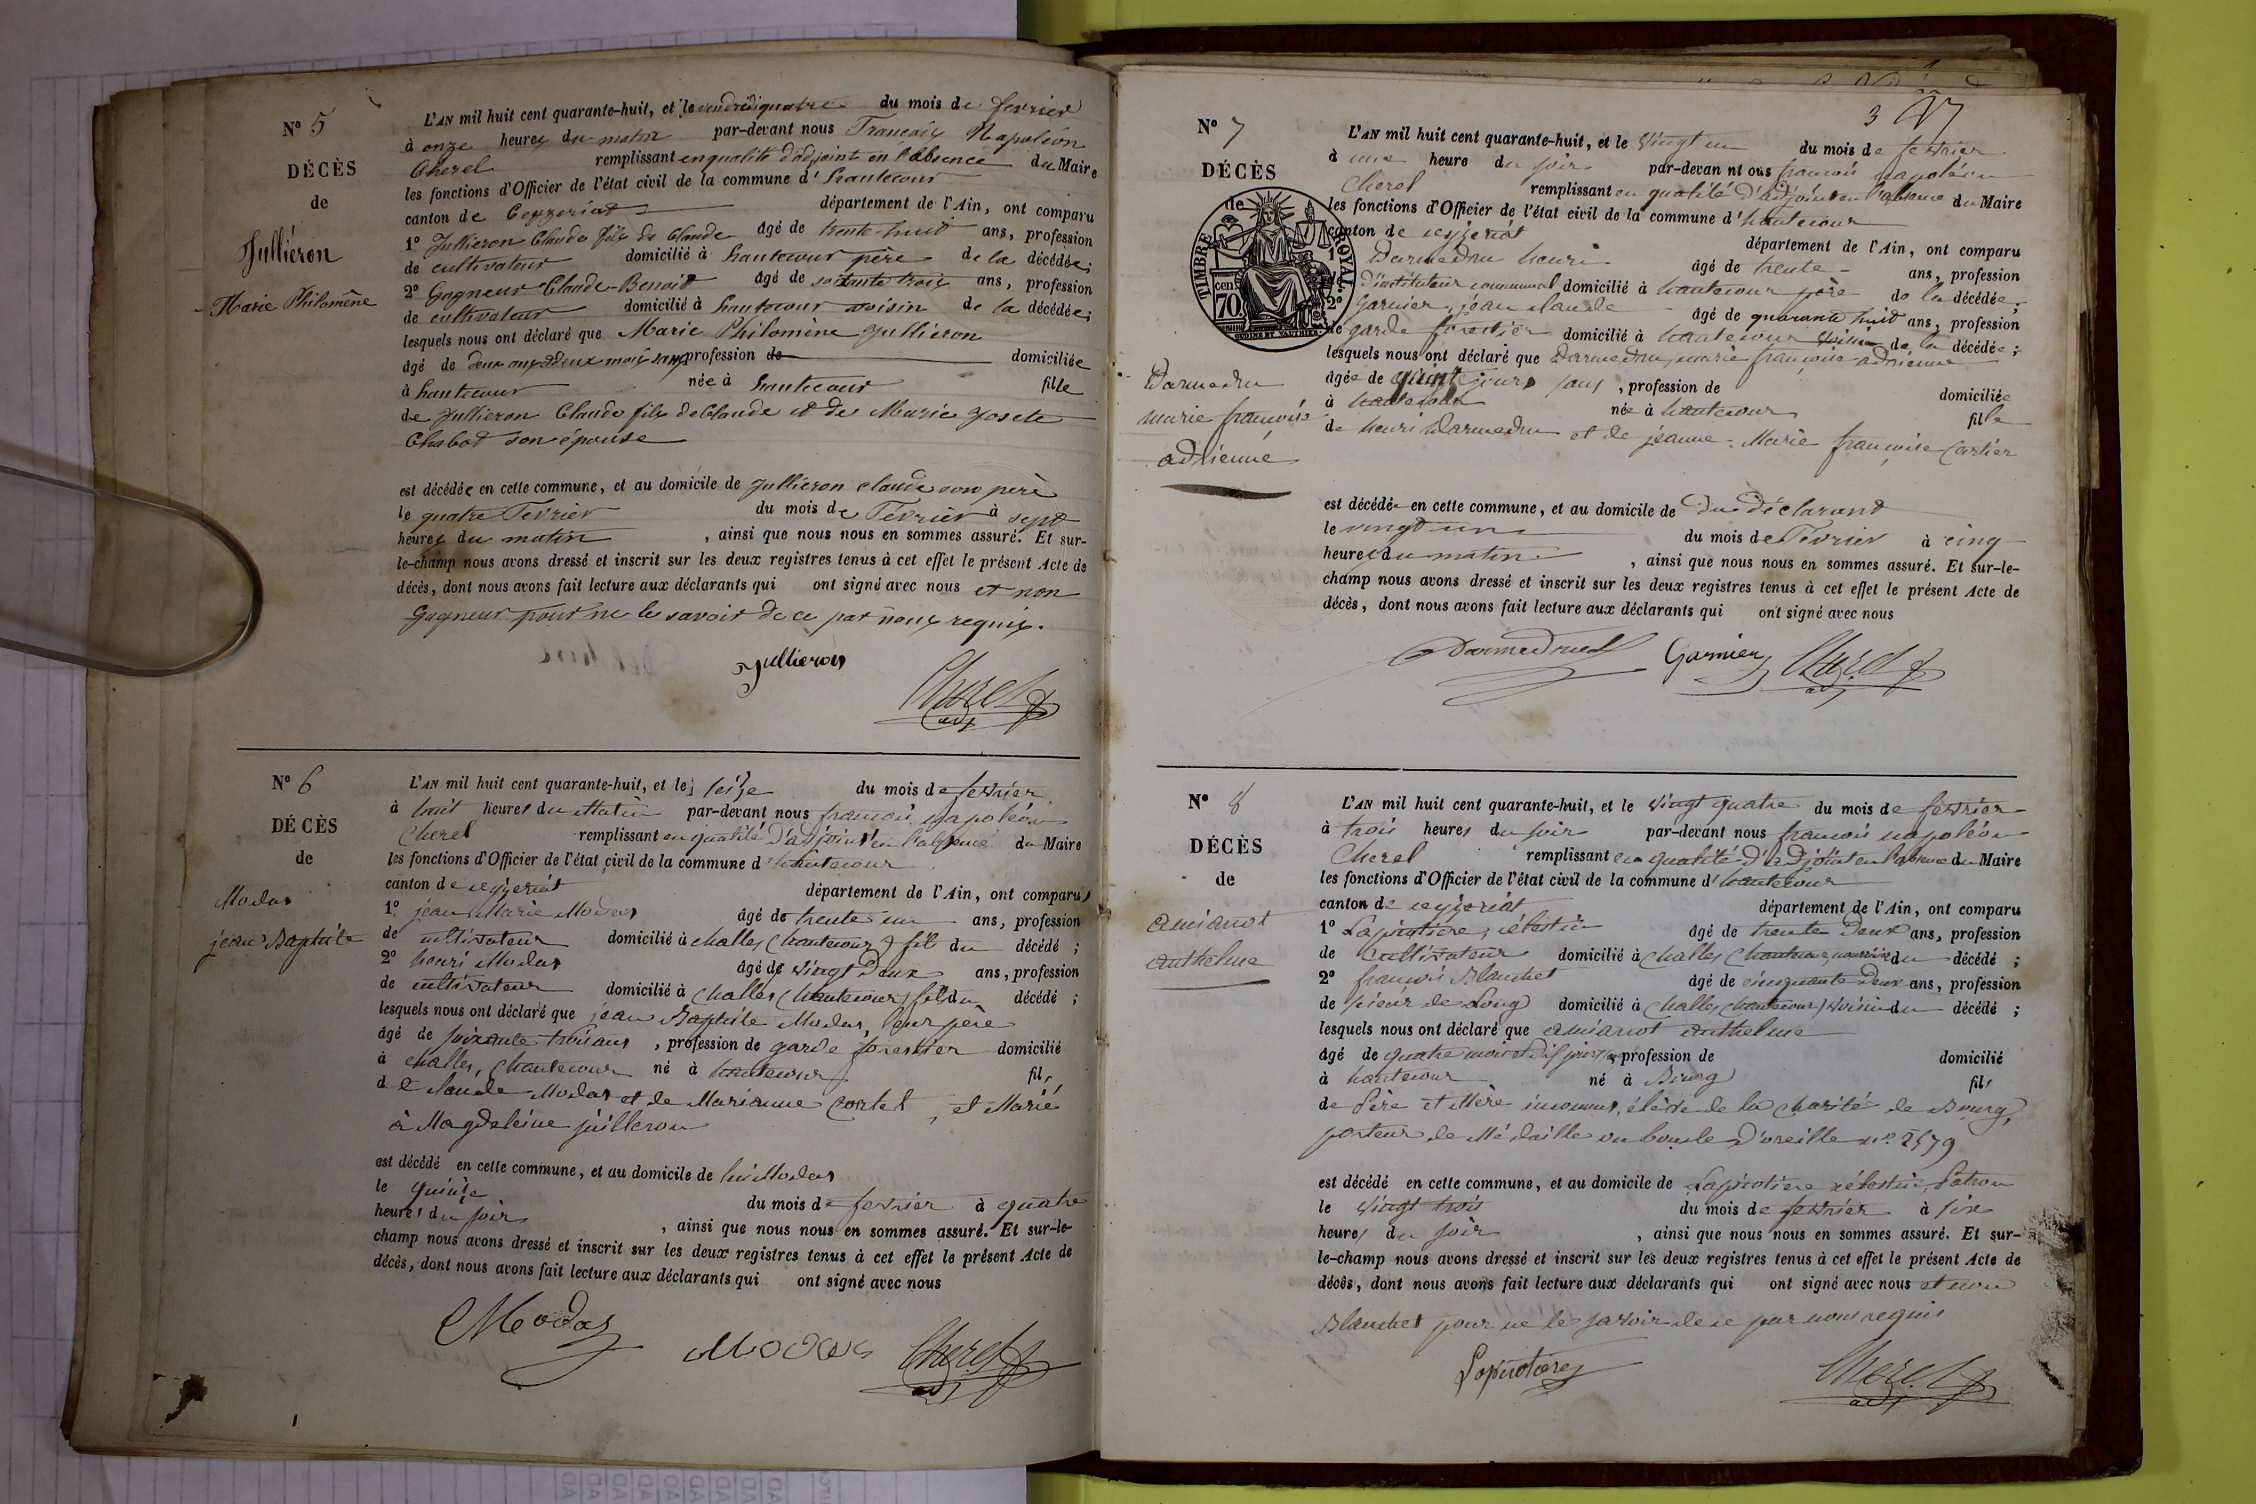 N° 5
DÉCÈS
de
Julliéron
Marie Philomène
L'AN mil huit cent quarante-huit, et le vendredi quatre du mois de fevrier
à onze heures du matin par-devant nous Francois Napoléon
Cherel remplissant en qualité d'adjoint en l'absence du Maire
les fonctions d'Officier de l'état civil de la commune d'hautecour
canton de Ceyzeriat département de l'Ain, ont comparu
1° Jullieron Claude fils de Claude âgé de trente-huit ans, profession
de cultivateur domicilié à hautecour père de la décédée;
2° Gagneur Claude-Benoit âgé de soixante trois ans, profession
de cultivateur domicilié à hautecour voisin de la décédée;
lesquels nous ont déclaré que Marie Philomène Jullieron
âgé de deux ans deux mois sans profession de domiciliée
à hautecour née à hautecour fille
de Jullieron Claude fils de Claude et de Marie Josete
Chabod son épouse
est décédée en cette commune, et au domicile de Jullieron Claude son père
le quatre Fevrier du mois de Fevrier à sept
heures du matin, ainsi que nous nous en sommes assuré. Et sur-
le-champ nous avons dressé et inscrit sur les deux registres tenus à cet effet le présent Acte de
décès, dont nous avons fait lecture aux déclarants qui ont signé avec nous et non
Gagneur pour ne le savoir de ce par nous requis.
Jullieron
Cherel
adj
N° 6
DÉCÈS
de
Modas
jean Baptiste
L'AN mil huit cent quarante-huit, et le seize du mois de fevrier
à huit heures du Matin par-devant nous francois napoléon
Cherel remplissant en qualité d'adjoint en l'absence du Maire
les fonctions d'Officier de l'état civil de la commune d'hautecour
canton de ceyzeriat département de l'Ain, ont comparu
1° jean Marie Modas âgé de trente un ans, profession
de cultivateur domicilié à challes (hautecour) fils du décédé ;
2° henri Modas âgé de vingt Deux ans, profession
de cultivateur domicilié à challes (hautecour) fils du décédé ;
lesquels nous ont déclaré que jean Baptiste Modas, leur père
âgé de soixante trois ans, profession de garde forestier domicilié
à challes, (hautecour né à hautecour fils
de Claude Modas et de Marianne Cortet, et Marié
à Magdeleine juilleron
est décédé en cette commune, et au domicile de lui Modas
le quinze du mois de fevrier à quatre
heures du soir, ainsi que nous nous en sommes assuré. Et sur-le-
champ nous avons dressé et inscrit sur les deux registres tenus à cet effet le présent Acte de
décès, dont nous avons fait lecture aux déclarants qui ont signé avec nous
Modas Modas Cherel
adj
3
N° 7
DÉCÈS
de
TIMBRE ROYAL
70 cen
Darmedru
marie françoise
adrienne
L'AN mil huit cent quarante-huit, et le vingt un du mois de fevrier
à une heure du soir par-devan nt ous francois napoléon
Cherel remplissant en qualité d'adjoint en l'absence du Maire
les fonctions d'Officier de l'état civil de la commune d'hautecour
canton de ceyzeriat département de l'Ain, ont comparu
1° Darmedru henri âgé de trente ans, profession
d'instituteur communal domicilié à hautecour père de la décédée;
2° Garnier, jean claude âgé de quarante huit ans, profession
de garde forestier domicilié à hautecour voisin de la décédée;
lesquels nous ont déclaré que Darmedru, marie françoise adrienne
âgée de jours sans, profession de domiciliée
à hautecour née à hautecour fille
de henri Darmedru et de jeanne-Marie françoise Cartier
est décédée en cette commune, et au domicile de Du Déclarant
le vingt un du mois de Fevrier à cinq
heures du matin, ainsi que nous nous en sommes assuré. Et sur-le-
champ nous avons dressé et inscrit sur les deux registres tenus à cet effet le présent Acte de
décès, dont nous avons fait lecture aux déclarants qui ont signé avec nous
Darmedru Garnier Cherel
adj
N° 8
DÉCÈS
de
amianot
anthelme
L'AN mil huit cent quarante-huit, et le vingt quatre du mois de fevrier
à trois heures du soir par-devant nous francois napoléon
Cherel remplissant en qualité d'adjoint en l'absence du Maire
les fonctions d'Officier de l'état civil de la commune d'hautecour
canton de ceyzeriat département de l'Ain, ont comparu
1° Lapiotière, célestin âgé de trente Deux ans, profession
de Cultivateur domicilié à challes (hautecour, du décédé ;
2° francois Blanchet âgé de cinquante Deux ans, profession
de sieur de Long domicilié à challes (hautecour) voisin du décédé ;
lesquels nous ont déclaré que amianot anthelme
âgé de quatre mois et dix jours, profession de domicilié
à hautecour né à Bourg fils
de Père et Mère inconnus, élève de la Charité de Bourg,
porteur de Médaille ou boucle d'oreille n°. 2579
est décédé en cette commune, et au domicile de Lapiotière célestin, Patron
le vingt trois du mois de fevrier à six
heures du soir, ainsi que nous nous en sommes assuré. Et sur-
le-champ nous avons dressé et inscrit sur les deux registres tenus à cet effet le présent Acte de
décès, dont nous avons fait lecture aux déclarants qui ont signé avec nous et non
Blanchet pour ne le savoir de ce par nous requis
Lapiotière Cherel
adj